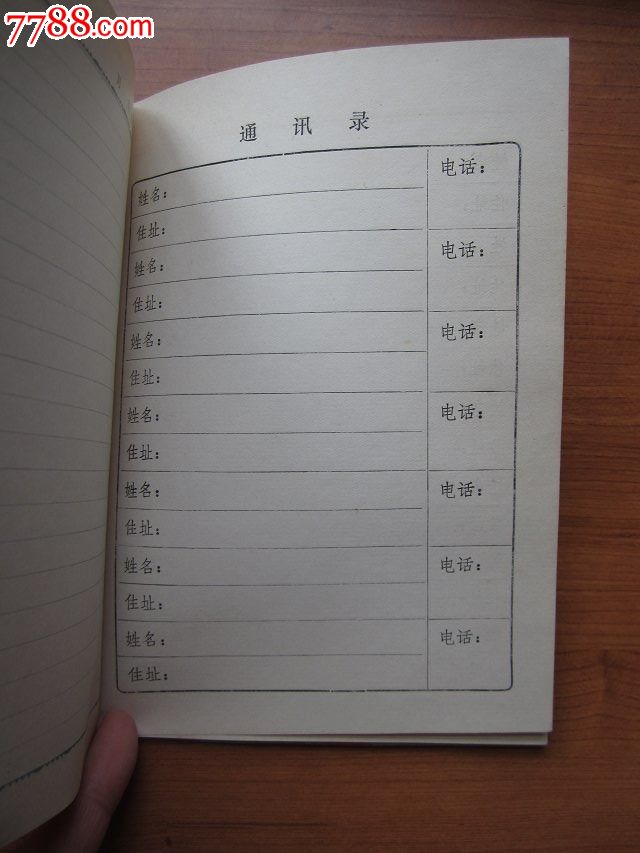 7788.com
通讯录
姓名： 电话：
住址：
姓名： 电话：
住址：
姓名： 电话：
住址：
姓名： 电话：
住址：
姓名： 电话：
住址：
姓名： 电话：
住址：
姓名： 电话：
住址：